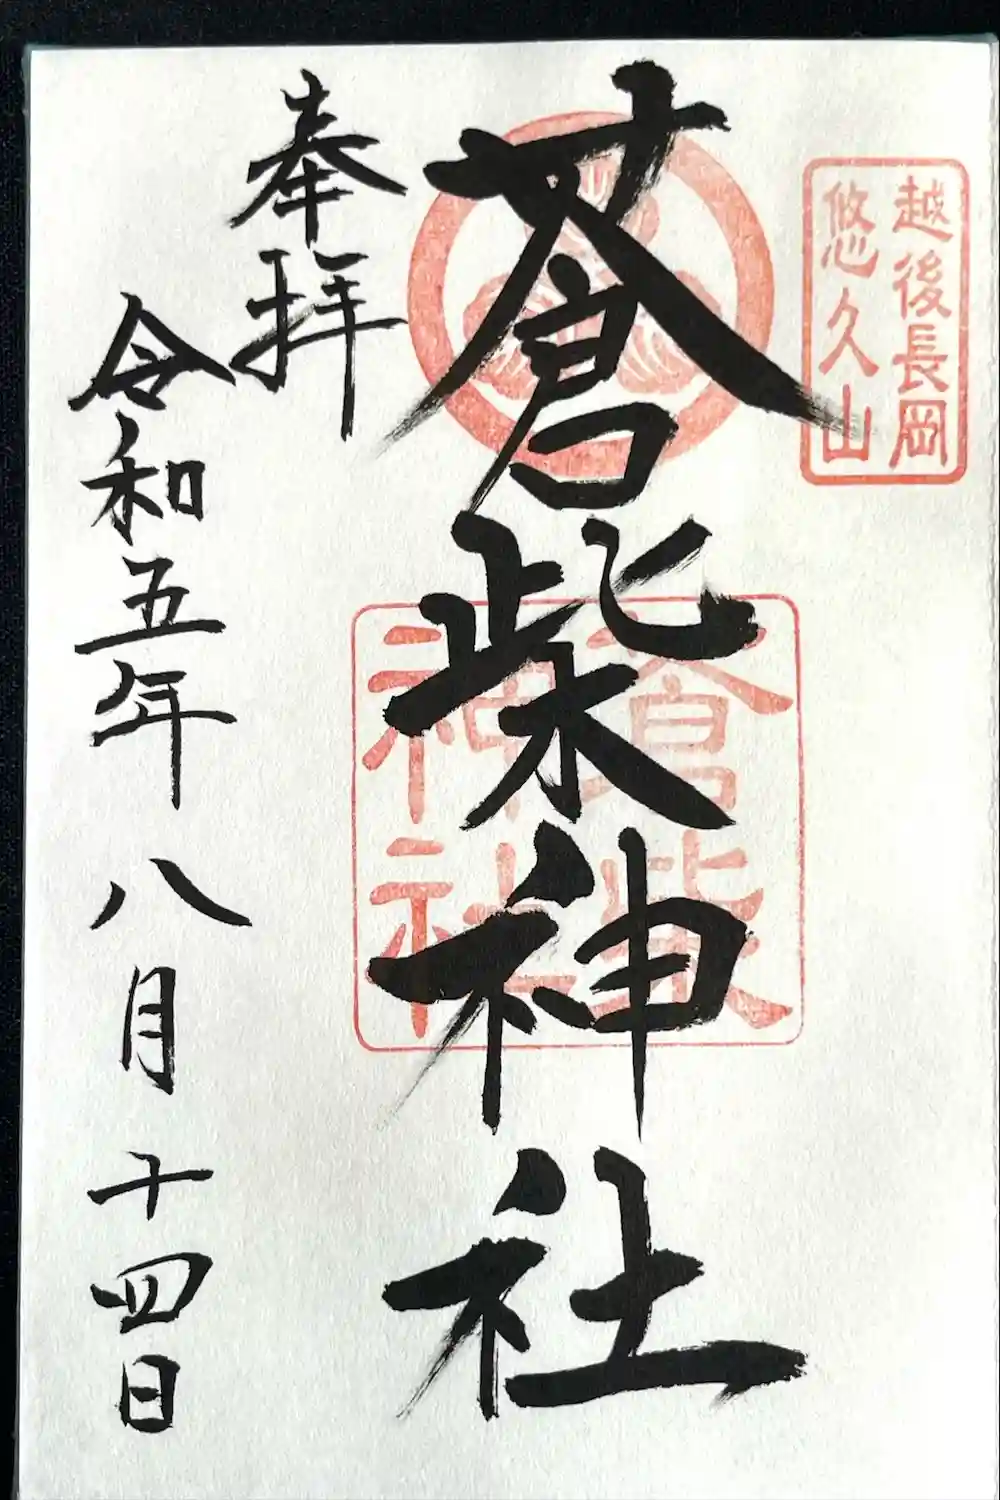 越後長岡
悠久山
蒼柴神社
蒼柴
神社
奉拝
令和五年八月十四日